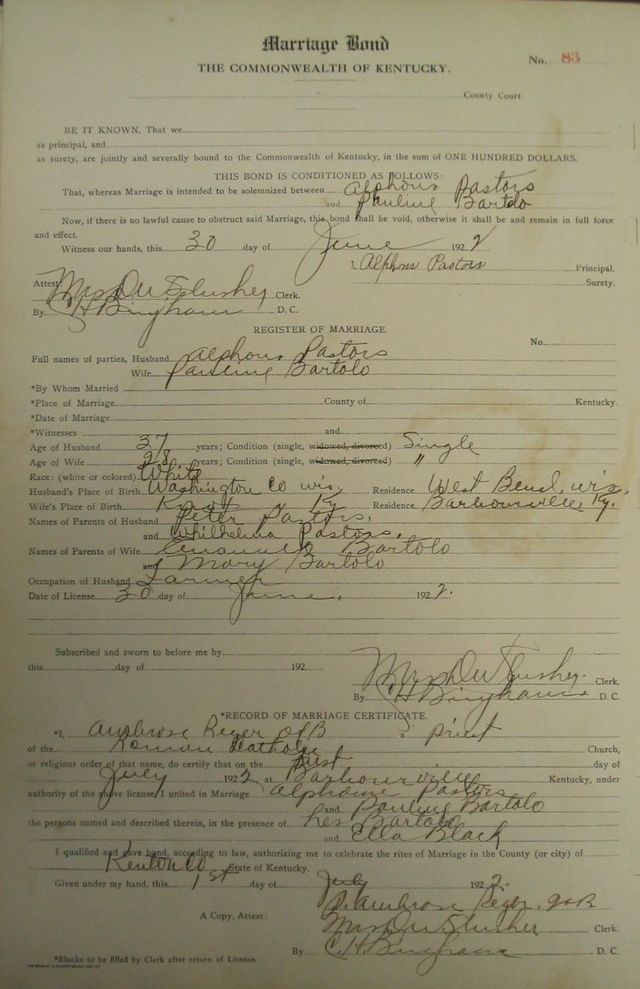 Marriage Bond
No. 85
THE COMMONWEALTH OF KENTUCKY.
County Court.
BE IT KNOWN, That we
as principal, and
as surety, are jointly and severally bound to the Commonwealth of Kentucky, in the sum of ONE HUNDRED DOLLARS.
THIS BOND IS CONDITIONED AS FOLLOWS:
That, whereas Marriage is intended to be solemnized between Alphons Pastors
and Pauline Bartolo
Now, if there is no lawful cause to obstruct said Marriage, this bond shall be void, otherwise it shall be and remain in full force
and effect.
Witness our hands, this 30 day of June 1922
Alphons Pastors Principal.
Surety.
Attest: Mrs D W Slusher Clerk.
By C H Bingham D. C.
REGISTER OF MARRIAGE.
No.
Full names of parties, Husband Alphons Pastors
Wife Pauline Bartolo
*By Whom Married
*Place of Marriage County of Kentucky.
*Date of Marriage
*Witnesses and
Age of Husband 37 years; Condition (single, widowed, divorced) Single
Age of Wife 28 years; Condition (single, widowed, divorced) "
Race: (white or colored) White
Husband's Place of Birth Washington Co wis. Residence West Bend, wis.
Wife's Place of Birth Knox " Ky Residence Barbourville, Ky.
Names of Parents of Husband Peter Pastors,
and Whilhelmia Pastors,
Names of Parents of Wife Bartolo
and Mary Bartolo
Occupation of Husband Farmer
Date of License 30 day of June, 1922.
Subscribed and sworn to before me by
this day of 192
Mrs D W Slusher Clerk.
By C H Bingham D. C.
*RECORD OF MARRIAGE CERTIFICATE.
*I, Ambrose Reger a priest
of the Roman Catholic Church,
or religious order of that name, do certify that on the first day of
July 1922 at Barbourville Kentucky, under
authority of the above license, I united in Marriage Alphonse Pastors
and Pauline Bartolo
the persons named and described therein, in the presence of Les Bartolo
and Ella Black
I qualified and gave bond, according to law, authorizing me to celebrate the rites of Marriage in the County (or city) of
Kenton Co State of Kentucky.
Given under my hand, this 1st day of July 1922.
P. Ambrose Reger
A Copy, Attest: Mrs D W Slusher Clerk.
By C H Bingham D. C.
*Blanks to be filled by Clerk after return of License.